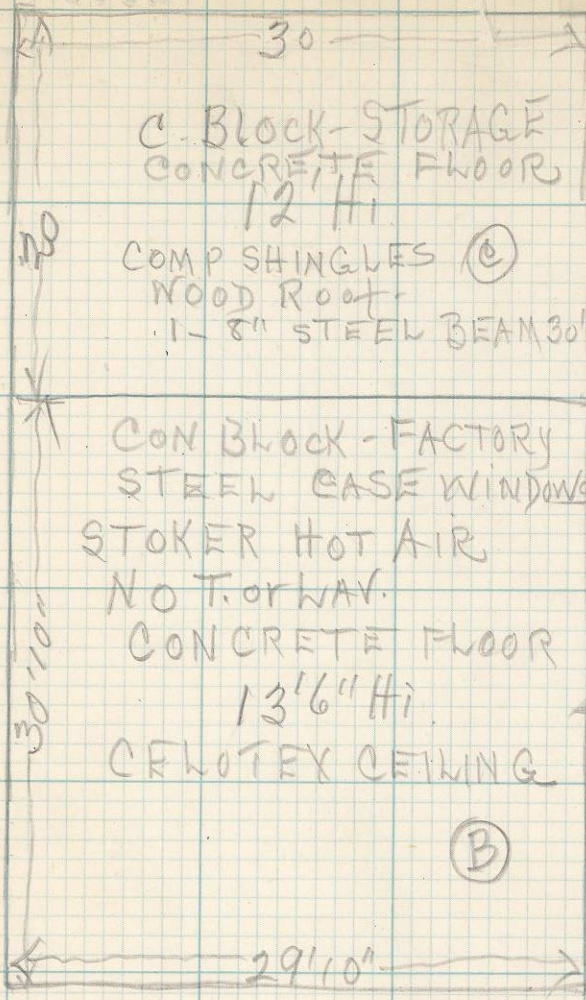 30
C-BLOCK-STORAGE
CONCRETE FLOOR
12' Hi
20
COMP SHINGLES C
WOOD Roof.
1-8" STEEL BEAM 30'
CON BLOCK-FACTORY
STEEL CASE WINDOWS
STOKER HOT AIR
NO T. or LAV.
CONCRETE FLOOR
30'10"
13'6" Hi
CELOTEX CEILING
B
29'10"